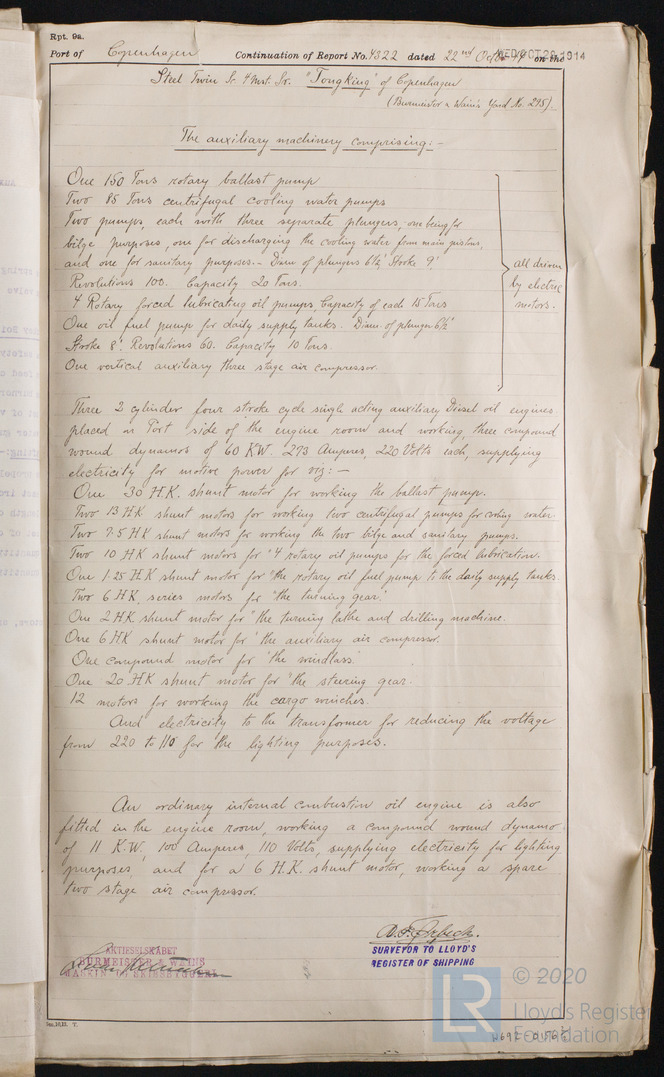 Rpt. 9a.
Port of Copenhagen Continuation of Report No. 4322 dated 22nd Octbr 1914 on the
WED. OCT. 28 1914
Steel Twin Sc. 4 Mst. Sr. "Tongking" of Copenhagen
(Burmeister & Wain's Yard No 295).
The auxiliary machinery comprising:-
One 150 Tons rotary ballast pump
Two 85 Tons centrifugal cooling water pumps
Two pumps, each with three separate plungers, one being for
bilge purposes, one for discharging the cooling water from main pistons,
and one for sanitary purposes.- Diam of plungers 6½" Stroke 9"
Revolutions 100. Capacity 20 Tons.
4 Rotary forced lubricating oil pumps Capacity of each 15 Tons
One oil fuel pump for daily supply tanks. Diam. of plunger 6½"
Stroke 8". Revolutions 60. Capacity 10 Tons.
One vertical auxiliary three stage air compressor.
all driven
by electric
motors.
Three 2 cylinder four stroke cycle single acting auxiliary Diesel oil engines
placed on Port side of the engine room and working three compound
wound dynamos of 60 KW. 273 Amperes, 220 Volts each, supplying
electricity for motive power for viz:-
One 30 H.K. shunt motor for working the ballast pump.
Two 13 HK shunt motors for working two centrifugal pumps for cooling water
Two 7.5 HK shunt motors for working the two bilge and sanitary pumps.
Two 10 HK shunt motors for "4 rotary oil pumps for the forced lubrication.
One 1.25 HK shunt motor for "the rotary oil fuel pump to the daily supply tanks.
Two 6 HK. series motors for "the turning gear.
One 2 HK shunt motor for "the turning lathe and drilling machine.
One 6 HK shunt motor for "the auxiliary air compressor.
One compound motor for "the windlass
One 20 HK shunt motor for "the steering gear.
12 motors for working the cargo winches.
And electricity to the transformer for reducing the voltage
from 220 to 110 for the lighting purposes.
An ordinary internal combustion oil engine is also
fitted in the engine room, working a compound wound dynamo
of 11 K.W. 100 Amperes, 110 Volts, supplying electricity for lighting
purposes, and for a 6 H.K. shunt motor, working a spare
two stage air compressor.
AKTIESELSKABET
BURMEISTER & WAIN'S
MASKIN- OG SKIBSBYGGERI
SURVEYOR TO LLOYD'S
REGISTER OF SHIPPING
LR
© 2020
Lloyd's Register
Foundation